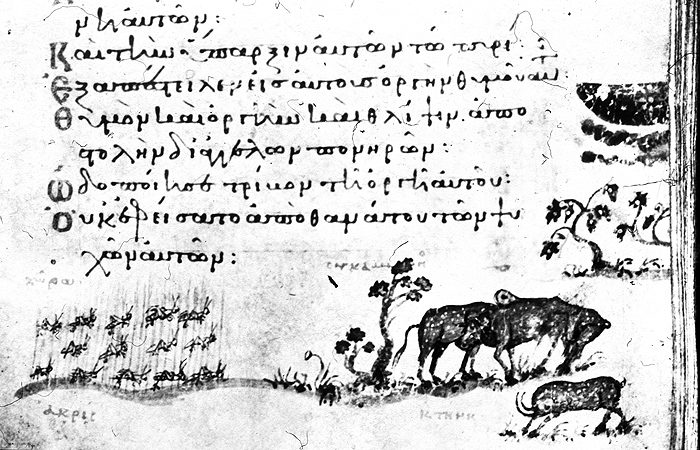 νη αὐτῶν:
Καὶ τὴν ὕπαρξιν αὐτῶν τῶ πυρί:
Ἐξαπέστειλεν εἰς αὐτοὺς ὀργὴν θυμοῦ αὐτοῦ:
Θυμὸν καὶ ὀργὴν καὶ θλίψιν ἀπο
στολὴν δι ἀγγέλων πονηρῶν:
Ὡδοποίησε τρίβον τῆ ὀργῆ αὐτοῦ:
Οὐκ ἐφείσατο ἀπὸ θανάτου τῶν ψυ
χῶν αὐτῶν:
χώρα
ἀκρίς
κτηνη